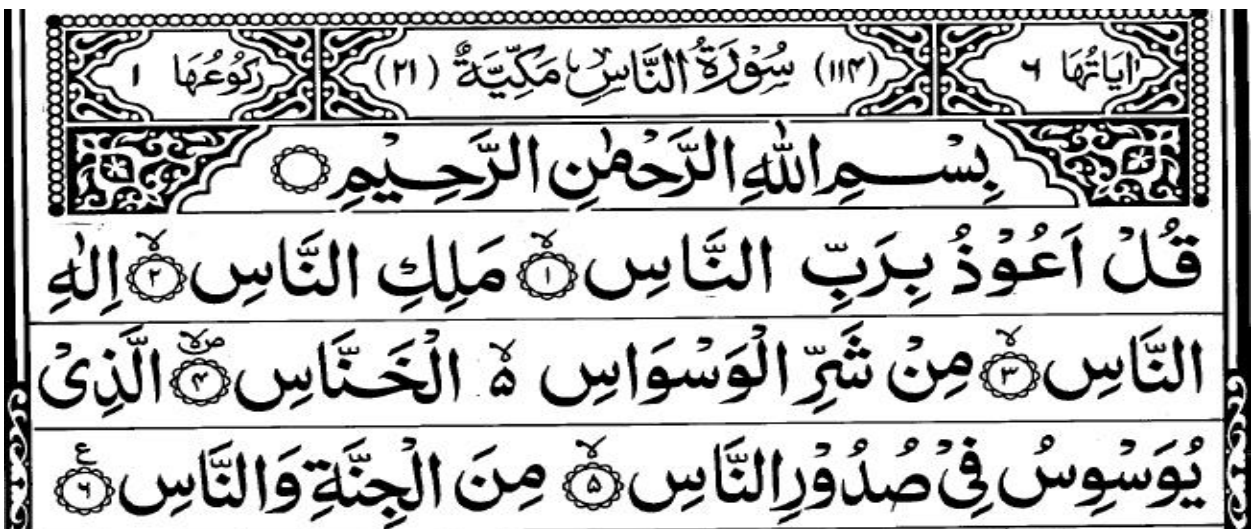 اٰيَاتُهَا ٦ (١١٤) سُوْرَةُ النَّاسِ مَكِّيَّةٌ (٢١) رُكُوْعُهَا ١
بِسْمِ اللّٰهِ الرَّحْمٰنِ الرَّحِيْمِ ۝
قُلْ اَعُوْذُ بِرَبِّ النَّاسِ ۙ﴿١﴾ مَلِكِ النَّاسِ ۙ﴿٢﴾ اِلٰهِ
النَّاسِ ۙ﴿٣﴾ مِنْ شَرِّ الْوَسْوَاسِ ۙ۵ الْخَنَّاسِ ۪ۙ﴿۴﴾ الَّذِىْ
يُوَسْوِسُ فِىْ صُدُوْرِ النَّاسِ ۙ﴿۵﴾ مِنَ الْجِنَّةِ وَالنَّاسِ ﴿٦﴾ ع